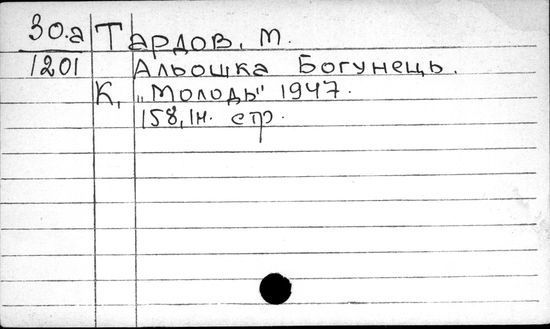 30.а Тардов, М.
1201 Альошка Богунець.
К, „Молодь" 1947.
158, Ін. стр.